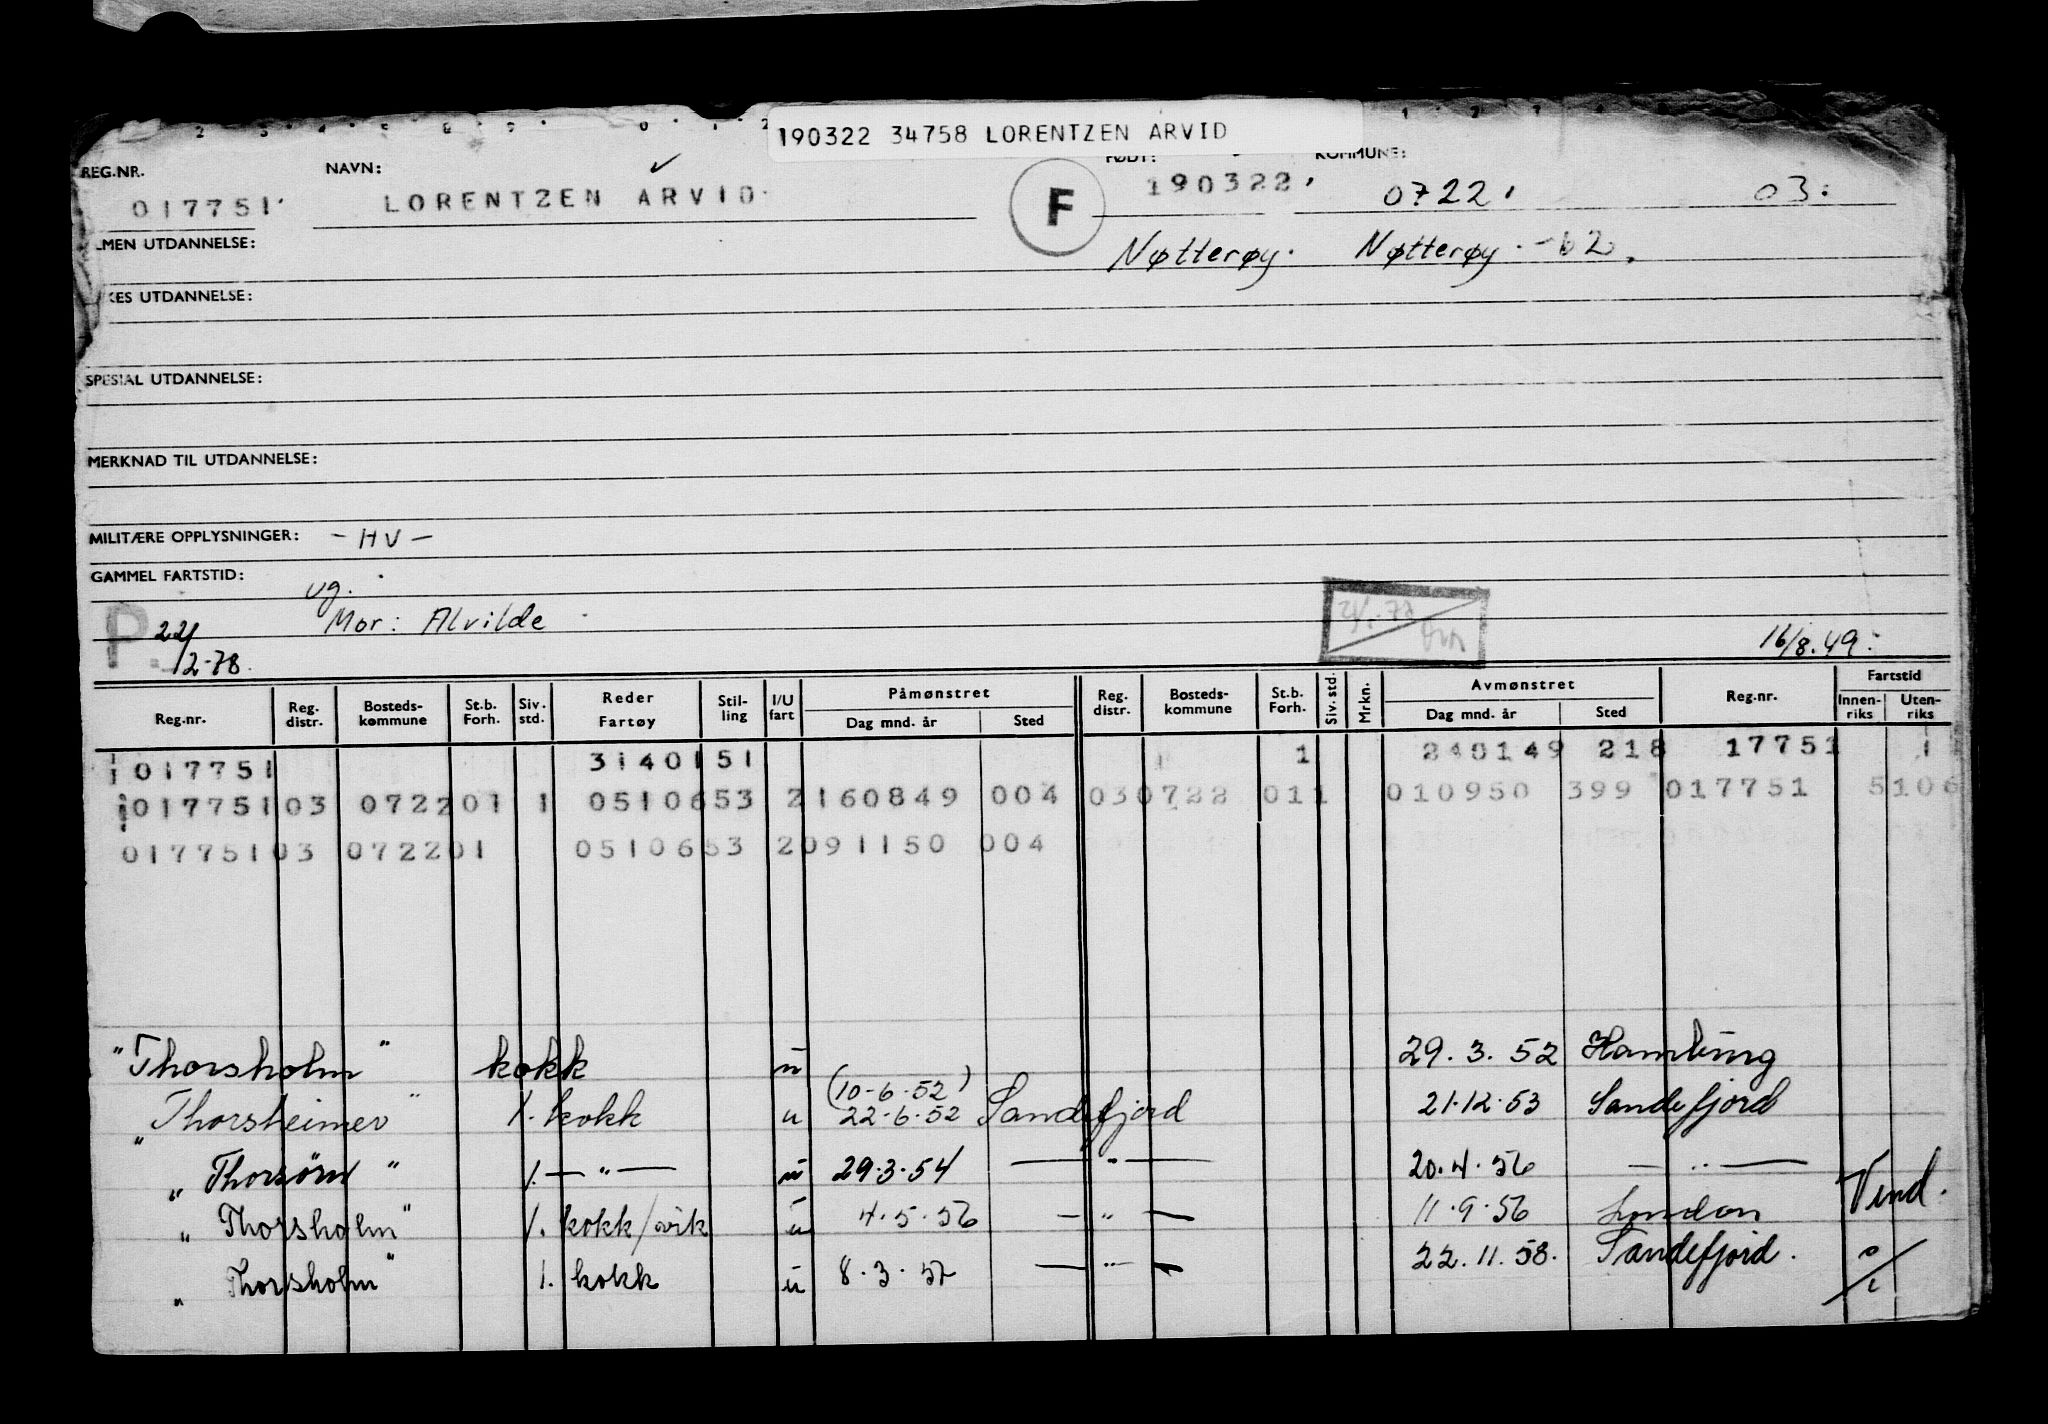 190322 34758 LORENTZEN ARVID
REG.NR. NAVN: FØDT: KOMMUNE:
017751 LORENTZEN ARVID F 190322 0722 03
LMEN UTDANNELSE: Nøtterøy. Nøtterøy. -62.
KES UTDANNELSE:
SPESIAL UTDANNELSE:
MERKNAD TIL UTDANNELSE:
MILITÆRE OPPLYSNINGER: - HV -
GAMMEL FARTSTID: ug.
Mor: Alvilde
P. 22/12-78. 16/8.49.
Reg.nr. Reg. distr. Bosteds-kommune St.b. Forh. Siv. std. Reder Fartøy Stil-ling I/U fart Påmønstret Dag mnd. år Sted Reg. distr. Bosteds-kommune St.b. Forh. Siv. std. Mrkn. Avmønstret Dag mnd. år Sted Reg.nr. Fartstid Innen-riks Uten-riks
017751 3140151 1 240149 218 17751 1
017751 03 0722 01 1 0510653 2 160849 004 03 0722 01 1 010950 399 017751 5106
017751 03 0722 01 0510653 2 091150 004
"Thorsholm" kokk u 29.3.52 Hamburg
(10-6-52)
"Thorsheimer" 1. kokk u 22-6-52 Sandefjord 21.12.53 Sandefjord
"Thorsörn" 1. — " — u 29.3.54 — " — 20.4.56 — " —
"Thorsholm" 1. kokk/vik u 4.5.56 — " — 11.9.56 London Vend.
"Thorsholm" 1. kokk u 8.3.57 — " — 22.11.58. Sandefjord.